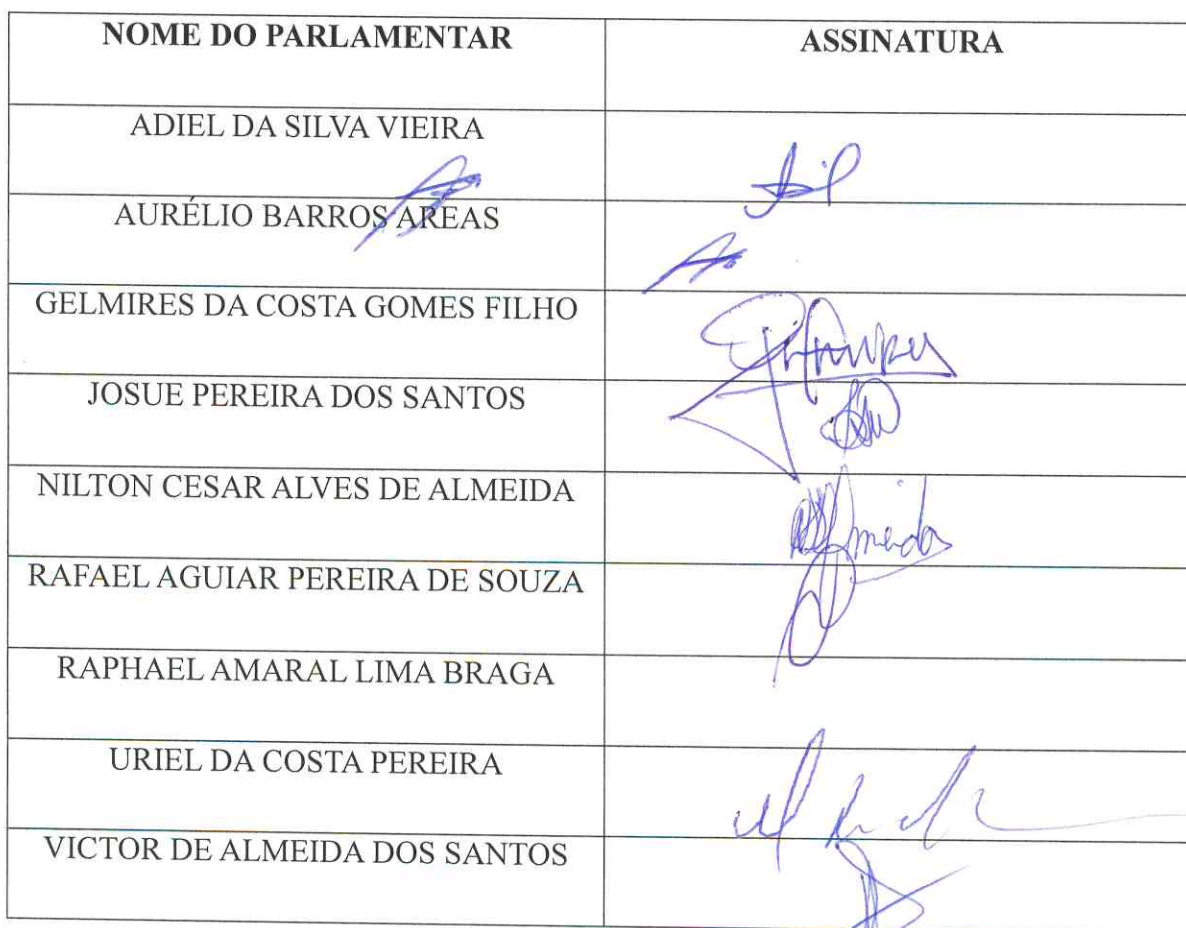 NOME DO PARLAMENTAR ASSINATURA
ADIEL DA SILVA VIEIRA
AURÉLIO BARROS AREAS
GELMIRES DA COSTA GOMES FILHO
JOSUE PEREIRA DOS SANTOS
NILTON CESAR ALVES DE ALMEIDA
RAFAEL AGUIAR PEREIRA DE SOUZA
RAPHAEL AMARAL LIMA BRAGA
URIEL DA COSTA PEREIRA
VICTOR DE ALMEIDA DOS SANTOS